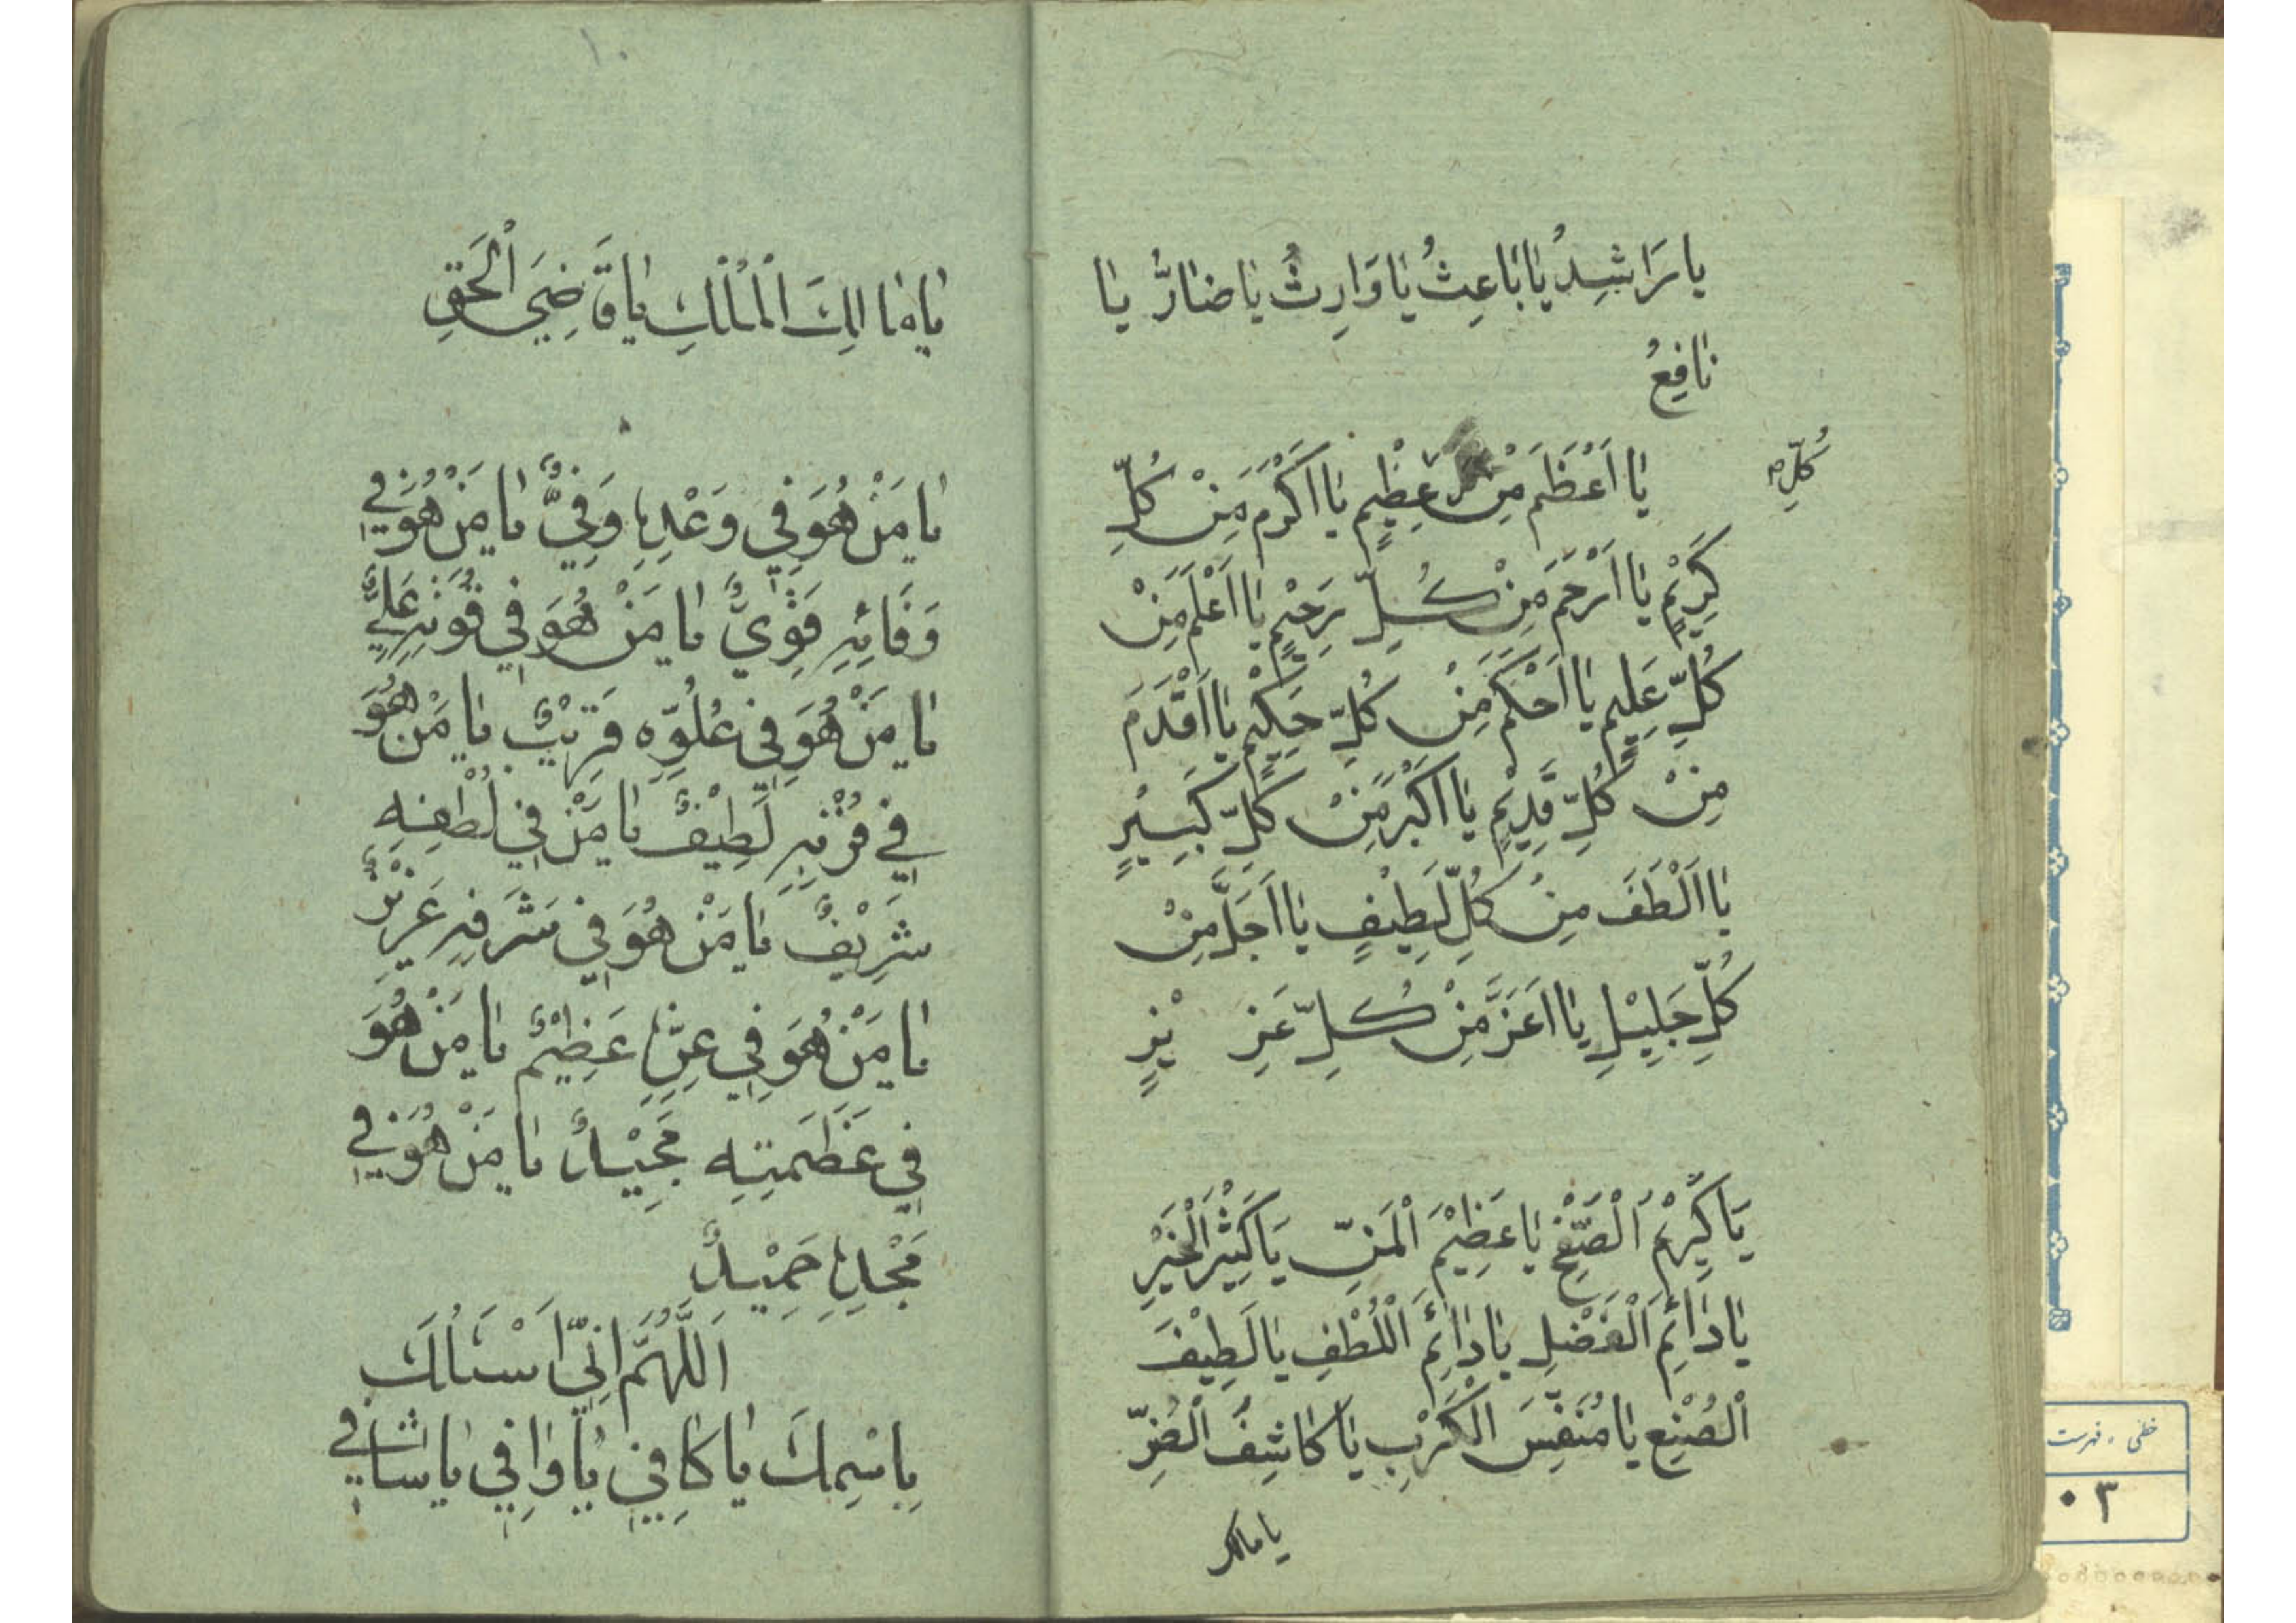 يا رَاشِدُ يا بَاعِثُ يا وَارِثُ يا ضارُّ يا
نافِعُ
يا اَعْظَمَ مِنْ عَظِيمٍ يا اَكْرَمَ مِنْ كُلِّ
كُلِّ
كَرِيْمٍ يا اَرْحَمَ مِنْ كُلِّ رَحِيْمٍ يا اَعْلَمَ مِنْ
كُلِّ عَلِيمٍ يا اَحْكَمَ مِنْ كُلِّ حَكِيْمٍ يا اَقْدَمَ
مِنْ كُلِّ قَدِيْمٍ يا اَكْبَرَ مِنْ كُلِّ كَبِيْرٍ
يا اَلْطَفَ مِنْ كُلِّ لَطِيْفٍ يا اَجَلَّ مِنْ
كُلِّ جَلِيْلٍ يا اَعَزَّ مِنْ كُلِّ عَزِيْزٍ
يَا كَرِيْمَ الْصَّفْحِ يا عَظِيْمَ الْمَنِّ يَا كَثِيْرَ الْخَيْرِ
يا دائِمَ الْفَضْلِ يا دائِمَ اللُّطْفِ يا لَطِيْفَ
الْصُنْعِ يا مُنَفِّسَ الْكَرْبِ يا كاشِفَ الْضُرِّ
يا مالك
يا مالِكَ الْمُلْكِ يا قَاضِيَ الْحَقِّ
يا مَنْ هُوَ فِي وَعْدِهِ وَفِيٌّ يا مَنْ هُوَ فِي
وَفَائِهِ قَوِيٌّ يا مَنْ هُوَ فِي قُوَّتِهِ عَلِيٌّ
يا مَنْ هُوَ فِي عُلُوِّهِ قَرِيْبٌ يا مَنْ هُوَ
فِي قُرْبِهِ لَطِيْفٌ يا مَنْ فِي لُطْفِهِ
شَرِيْفٌ يا مَنْ هُوَ فِي شَرَفِهِ عَزِيْزٌ
يا مَنْ هُوَ فِي عِزِّهِ عَظِيْمٌ يا مَنْ هُوَ
فِي عَظَمَتِهِ مَجِيْدٌ يا مَنْ هُوَ فِي
مَجْدِهِ حَمِيْدٌ
اَللّهُمَّ اِنِّي اَسْئَلُكَ
بِاسْمِكَ يا كافِي يا وافِي يا شافِي
١٠
خطى ، فهرست
٠٣